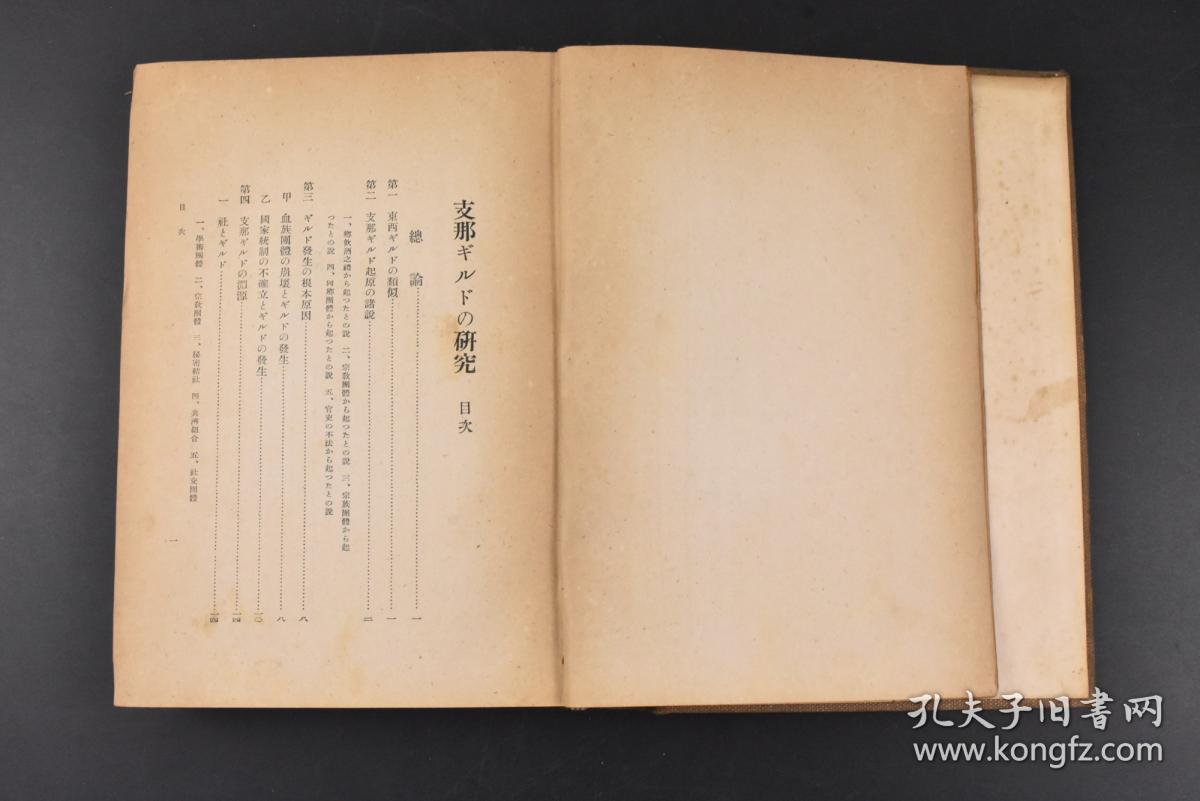 支那ギルドの研究 目次
總論……一
第一 東西ギルドの類似……一
第二 支那ギルド起原の諸說……二
一、鄕飮酒之禮から起つたとの說 二、宗敎團體から起つたとの說 三、宗族團體から起
つたとの說 四、同鄕團體から起つたとの說 五、官吏の不法から起つたとの說
第三 ギルド發生の根本原因……八
甲 血族團體の崩壞とギルドの發生……八
乙 國家統制の不確立とギルドの發生……一〇
第四 支那ギルドの淵源……一四
一 社とギルド……一四
一、學術團體 二、宗敎團體 三、祕密結社 四、共濟組合 五、社交團體
目次
一
孔夫子旧書网
www.kongfz.com